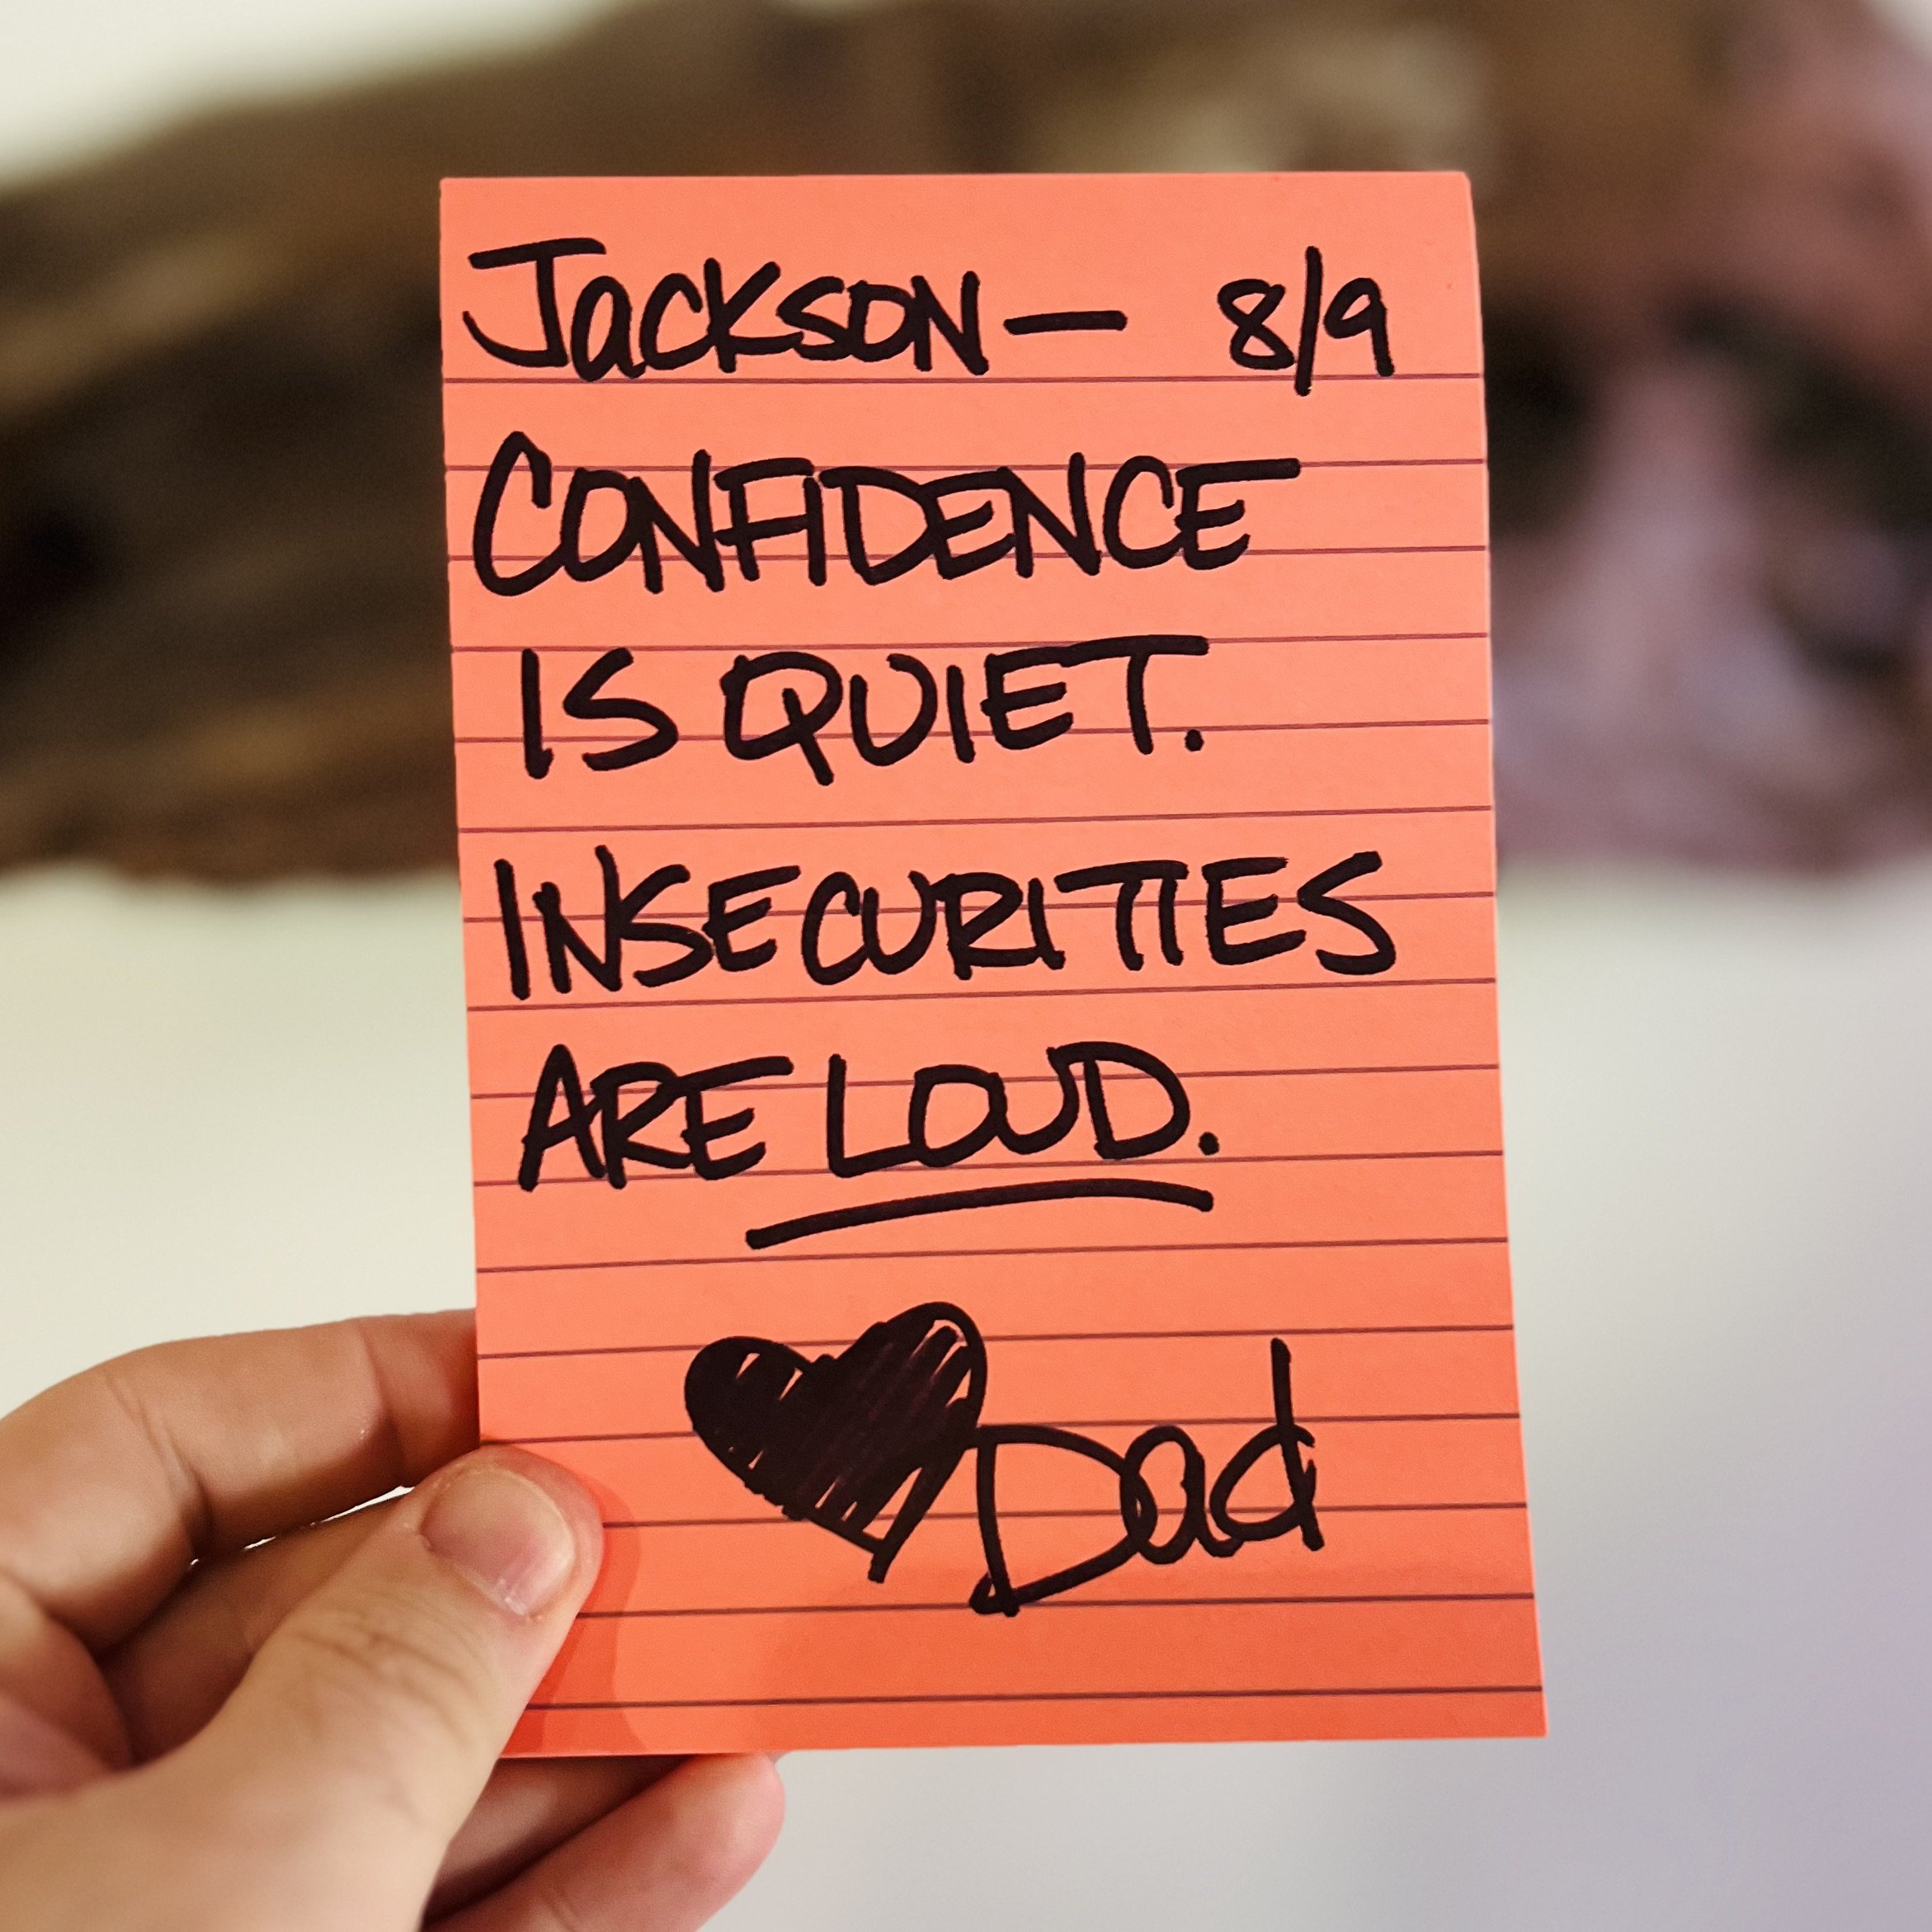 Jackson — 8/9
CONFIDENCE
IS QUIET.
INSECURITIES
ARE LOUD.
Dad